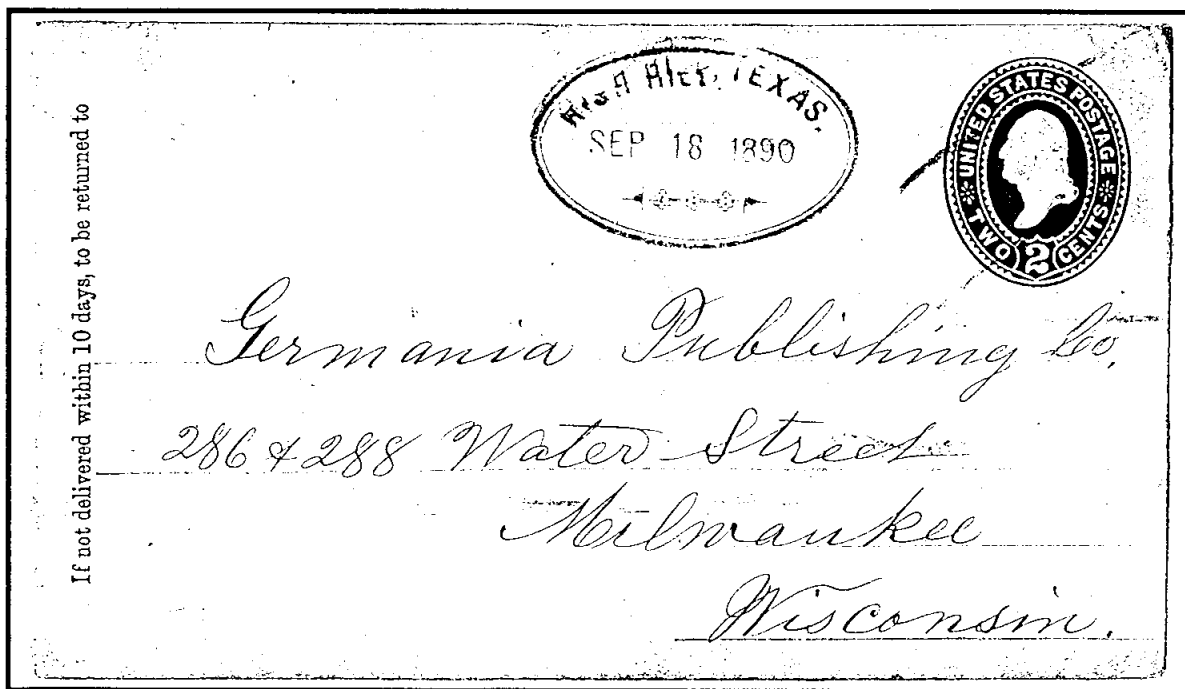 If not delivered within 10 days, to be returned to
HIGH HILL, TEXAS.
SEP 18 1890
UNITED STATES POSTAGE
TWO 2 CENTS
Germania Publishing Co.
286 & 288 Water Street
Milwaukee
Wisconsin.